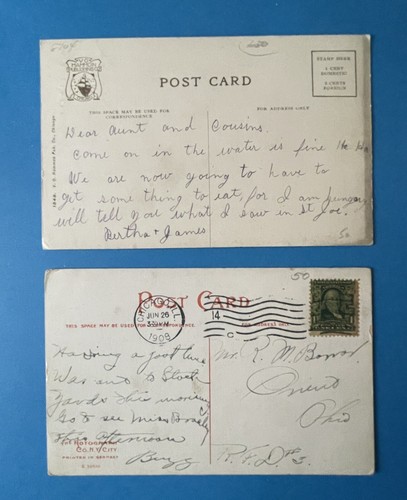 POST CARD
STAMP HERE
1 CENT DOMESTIC
2 CENTS FOREIGN
THIS SPACE MAY BE USED FOR CORRESPONDENCE
FOR ADDRESS ONLY
Dear Aunt and Cousins.
Come on in the water is fine
We are now going to have to
get some thing to eat, for I am hungry
will tell you what I saw in St Joe.
Bertha & James
50
50
POST CARD
CHICAGO, ILL.
JUN 26
1908
14
C
THIS SPACE MAY BE USED FOR CORRESPONDENCE
FOR ADDRESS ONLY
Having a good time
Was out to Stock
yards this morning
Go to see Miss
this afternoon
Mr. R. M.
Orient
Ohio
R.F.D. #3.
THE ROTOGRAPH CO., N.Y. CITY
PRINTED IN GERMANY